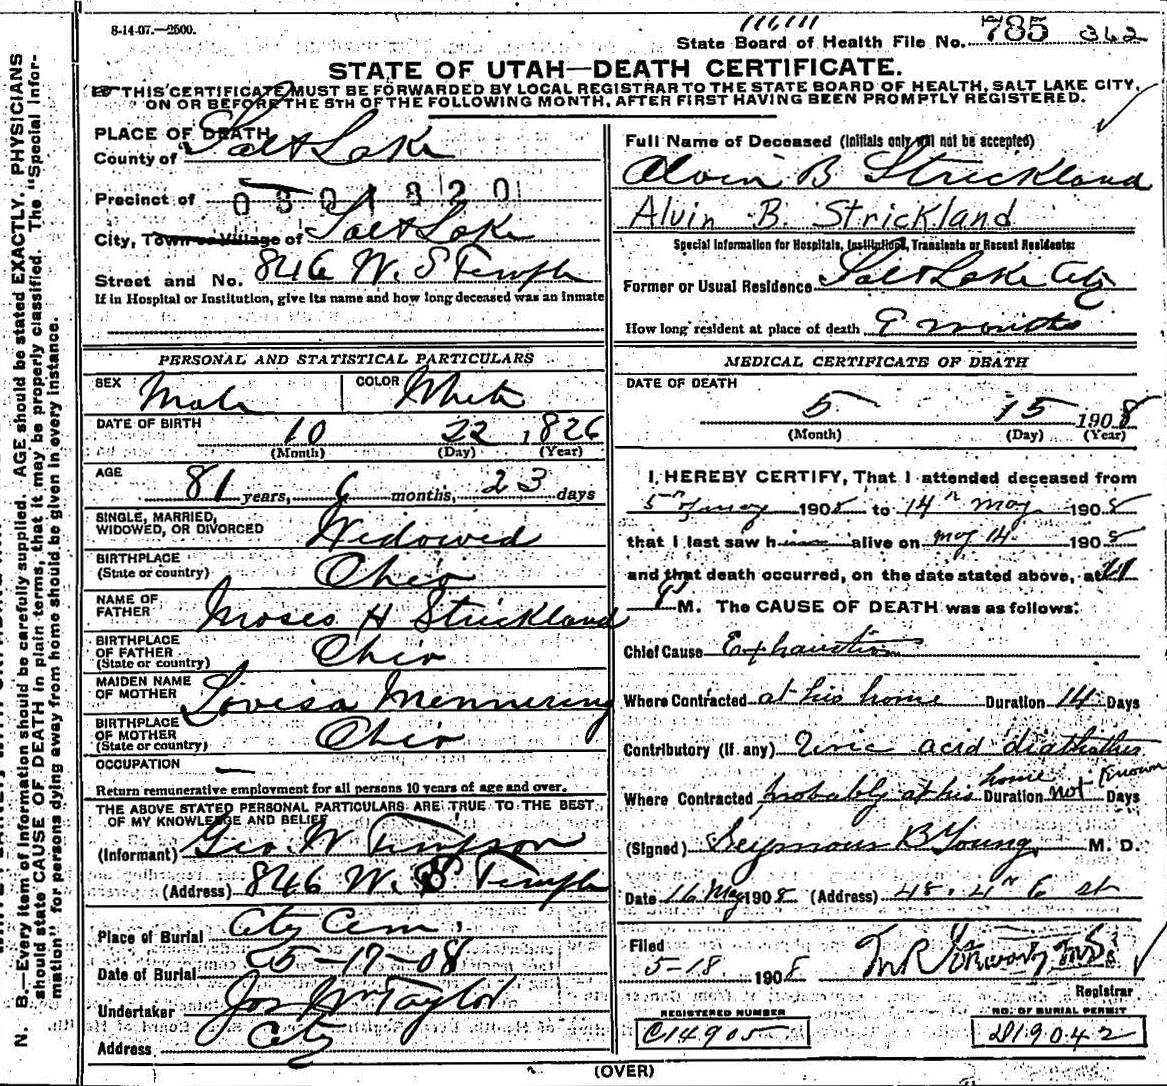 8-14-07.—2500.
State Board of Health File No. 785 362
STATE OF UTAH—DEATH CERTIFICATE.
THIS CERTIFICATE MUST BE FORWARDED BY LOCAL REGISTRAR TO THE STATE BOARD OF HEALTH, SALT LAKE CITY,
ON OR BEFORE THE 5TH OF THE FOLLOWING MONTH, AFTER FIRST HAVING BEEN PROMPTLY REGISTERED.
PLACE OF DEATH
County of Salt Lake
Precinct of 0301820
City, Town or Village of Salt Lake
Street and No. 846 W. S Temple
If in Hospital or Institution, give its name and how long deceased was an inmate
Full Name of Deceased (Initials only will not be accepted)
Alvin B Strickland
Alvin B. Strickland
Special Information for Hospitals, Institutions, Transients or Recent Residents:
Former or Usual Residence Salt Lake City
How long resident at place of death 9 months
PERSONAL AND STATISTICAL PARTICULARS
SEX Male COLOR White
DATE OF BIRTH 10 22, 1826
(Month) (Day) (Year)
AGE 81 years, 6 months, 23 days
SINGLE, MARRIED,
WIDOWED, OR DIVORCED Widowed
BIRTHPLACE
(State or country) Ohio
NAME OF
FATHER Moses H Strickland
BIRTHPLACE
OF FATHER
(State or country) Ohio
MAIDEN NAME
OF MOTHER Lovisa Mennering
BIRTHPLACE
OF MOTHER
(State or country) Ohio
OCCUPATION —
Return remunerative employment for all persons 10 years of age and over.
THE ABOVE STATED PERSONAL PARTICULARS ARE TRUE TO THE BEST
OF MY KNOWLEDGE AND BELIEF
(Informant) Geo. W Timpson
(Address) 846 W. S Temple
Place of Burial City Cem.
Date of Burial 5-17-08
Undertaker Jos Wm Taylor
Address City
MEDICAL CERTIFICATE OF DEATH
DATE OF DEATH
5 15 1908
(Month) (Day) (Year)
I HEREBY CERTIFY, That I attended deceased from
5th May 1908 to 14th May 1908
that I last saw him alive on May 14 1908
and that death occurred, on the date stated above, at 11
P M. The CAUSE OF DEATH was as follows:
Chief Cause Exhaustion
Where Contracted at his home Duration 14 Days
Contributory (if any) Uric acid diathathes
Where Contracted probably at his home Duration not known Days
(Signed) Seymour B Young M. D.
Date 16 May 1908 (Address) 48. 4th E st
Filed
5-18 1908
Registrar
REGISTERED NUMBER
C14905
NO. OF BURIAL PERMIT
D19042
(OVER)
N. B.—Every item of information should be carefully supplied. AGE should be stated EXACTLY. PHYSICIANS
should state CAUSE OF DEATH in plain terms, that it may be properly classified. The "Special Infor-
mation" for persons dying away from home should be given in every instance.